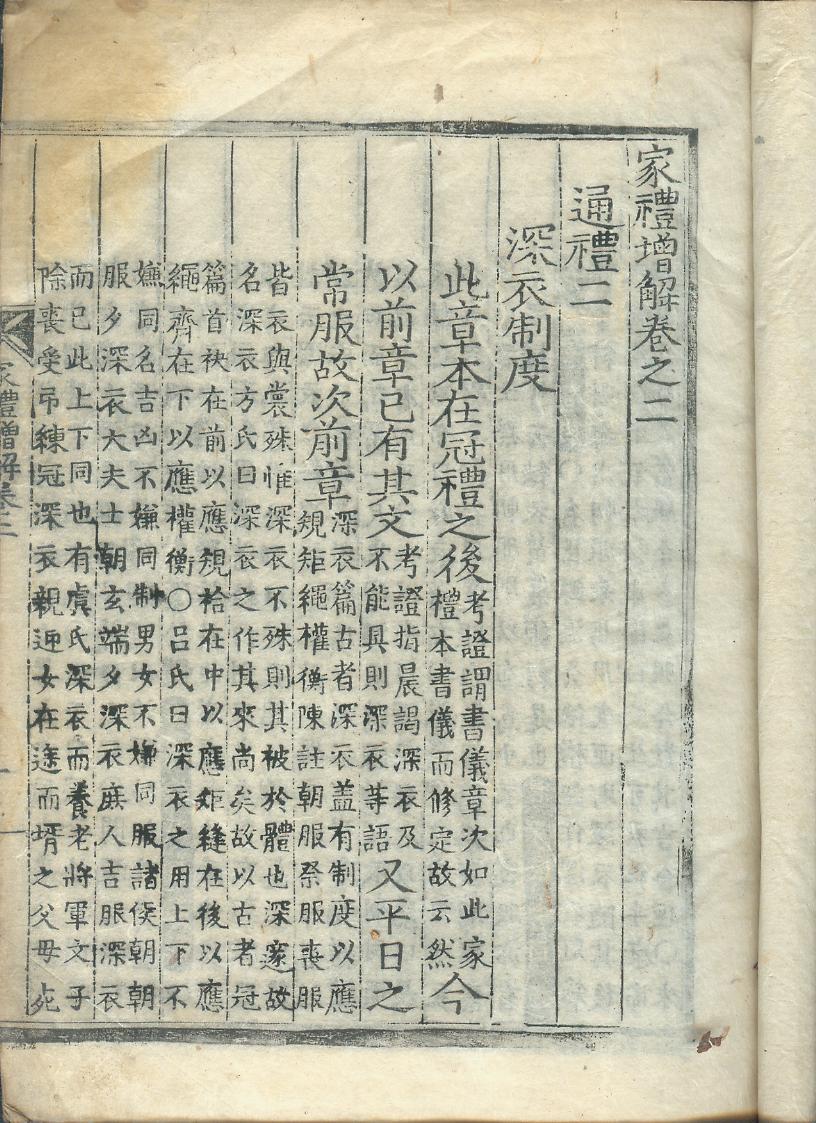 家禮增解卷之二
通禮二
深衣制度
此章本在冠禮之後
考證謂書儀章次如此家
禮本書儀而修定故云然
今
以前章已有其文
考證指晨謁深衣及
不能具則深衣等語
又平日之
常服故次前章
深衣篇古者深衣盖有制度以應
規矩繩權衡陳註朝服祭服喪服
皆衣與裳殊惟深衣不殊則其被於體也深邃故
名深衣方氏曰深衣之作其來尚矣故以古者冠
篇首袂在前以應規袷在中以應矩縫在後以應
繩齊在下以應權衡〇呂氏曰深衣之用上下不
嫌同名吉凶不嫌同制男女不嫌同服諸侯朝朝
服夕深衣大夫士朝玄端夕深衣庶人吉服深衣
而已此上下同也有虞氏深衣而養老將軍文子
除喪受吊練冠深衣親迎女在途而壻之父母死
家禮增解卷二
一